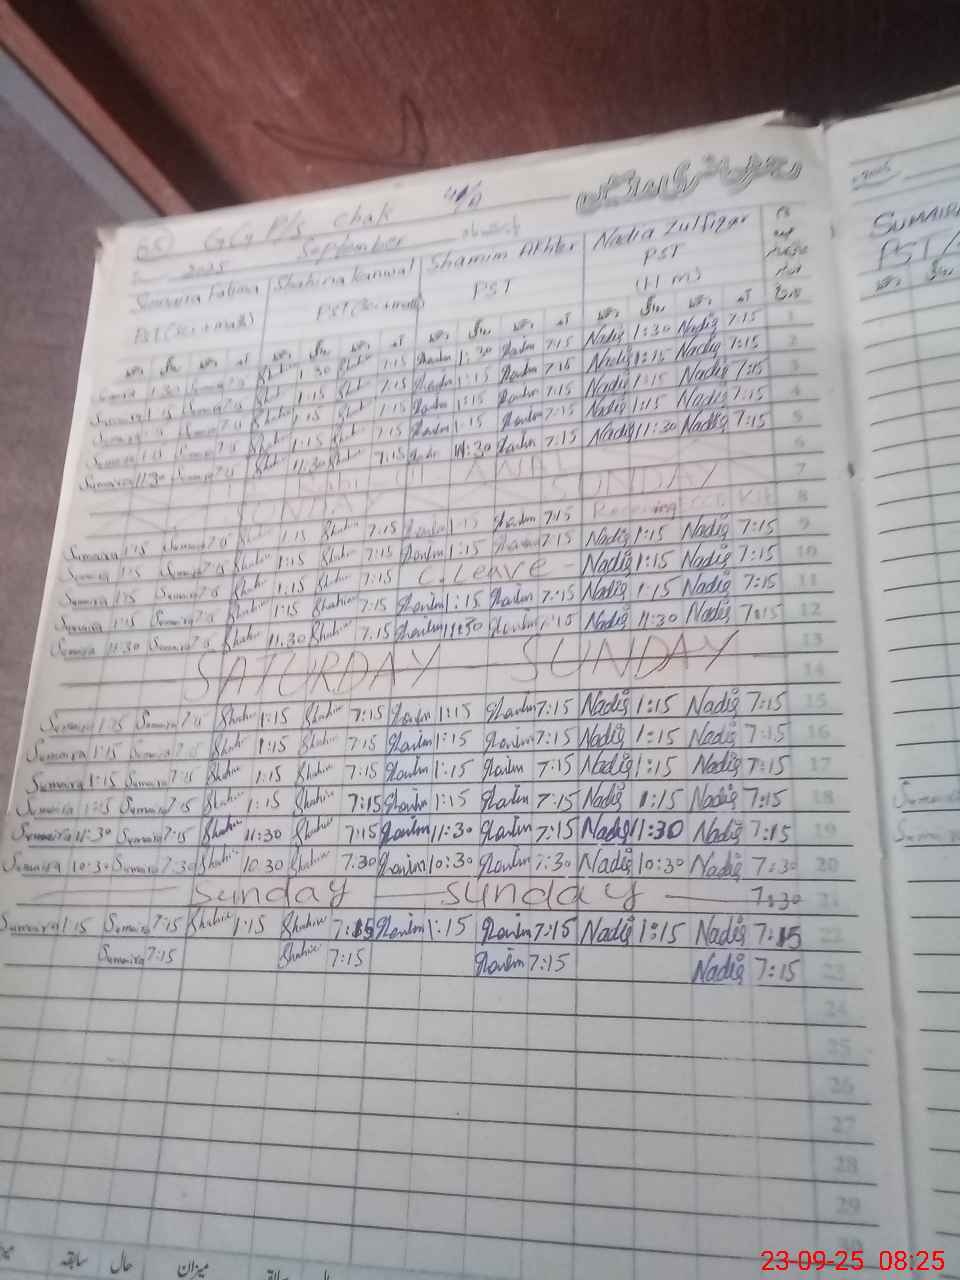 رجسٹر حاضری مدرسین
GGP/s Chak
2025 September
Sumaira Fatima Shahina Kanwal Shamim Akhter Nadia Zulfiqar
PST (Sci + math) PST (Sci + math) PST PST
(H m)
1
Sumaira 1:30 Sumaira 7:15 Shahin 1:30 Shahin 7:15 Shamim 1:30 Shamim 7:15 Nadia 1:30 Nadia 7:15 2
Sumaira 1:15 Sumaira 7:15 Shahin 1:15 Shahin 7:15 Shamim 1:15 Shamim 7:15 Nadia 1:15 Nadia 7:15 3
Sumaira 7:15 Shahin 1:15 Shahin 7:15 Shamim 1:15 Shamim 7:15 Nadia 1:15 Nadia 7:15 4
Sumaira 1:15 Sumaira 7:15 Shahin 1:15 Shahin 7:15 Shamim 1:15 Shamim 7:15 Nadia 1:15 Nadia 7:15 5
Sumaira 11:30 Sumaira 7:15 Shahin 11:30 Shahin 7:15 Shamim 11:30 Shamim 7:15 Nadia 11:30 Nadia 7:15 6
SUNDAY SUNDAY 7
Receiving Kit 8
Sumaira 1:15 Sumaira 7:15 Shahin 1:15 Shahin 7:15 Shamim 1:15 Shamim 7:15 Nadia 1:15 Nadia 7:15 9
Sumaira 1:15 Sumaira 7:15 Shahin 1:15 Shahin 7:15 Shamim 1:15 Shamim 7:15 Nadia 1:15 Nadia 7:15 10
Sumaira 1:15 Sumaira 7:15 Shahin 1:15 Shahin 7:15 C. Leave - Nadia 1:15 Nadia 7:15 11
Sumaira 1:15 Sumaira 7:15 Shahin 1:15 Shahin 7:15 Shamim 1:15 Shamim 7:15 Nadia 11:30 Nadia 7:15 12
Sumaira 11:30 Sumaira 7:15 Shahin 11:30 Shahin 7:15 Shamim 11:30 Shamim 7:15 13
SATURDAY SUNDAY 14
Sumaira 1:15 Sumaira 7:15 Shahin 1:15 Shahin 7:15 Shamim 1:15 Shamim 7:15 Nadia 1:15 Nadia 7:15 15
Sumaira 1:15 Sumaira 7:15 Shahin 1:15 Shahin 7:15 Shamim 1:15 Shamim 7:15 Nadia 1:15 Nadia 7:15 16
Sumaira 1:15 Sumaira 7:15 Shahin 1:15 Shahin 7:15 Shamim 1:15 Shamim 7:15 Nadia 1:15 Nadia 7:15 17
Sumaira 1:15 Sumaira 7:15 Shahin 1:15 Shahin 7:15 Shamim 1:15 Shamim 7:15 Nadia 1:15 Nadia 7:15 18
Sumaira 11:30 Sumaira 7:15 Shahin 11:30 Shahin 7:15 Shamim 11:30 Shamim 7:15 Nadia 11:30 Nadia 7:15 19
Sumaira 10:30 Sumaira 7:30 Shahin 10:30 Shahin 7:30 Shamim 10:30 Shamim 7:30 Nadia 10:30 Nadia 7:30 20
Sunday Sunday 7:30 21
Sumaira 1:15 Sumaira 7:15 Shahin 1:15 Shahin 7:15 Shamim 1:15 Shamim 7:15 Nadia 1:15 Nadia 7:15 22
Sumaira 7:15 Shahin 7:15 Shamim 7:15 Nadia 7:15 23
24
25
26
27
28
29
30
میزان حال سابقہ
SUMAIRA
PST
23-09-25 08:25